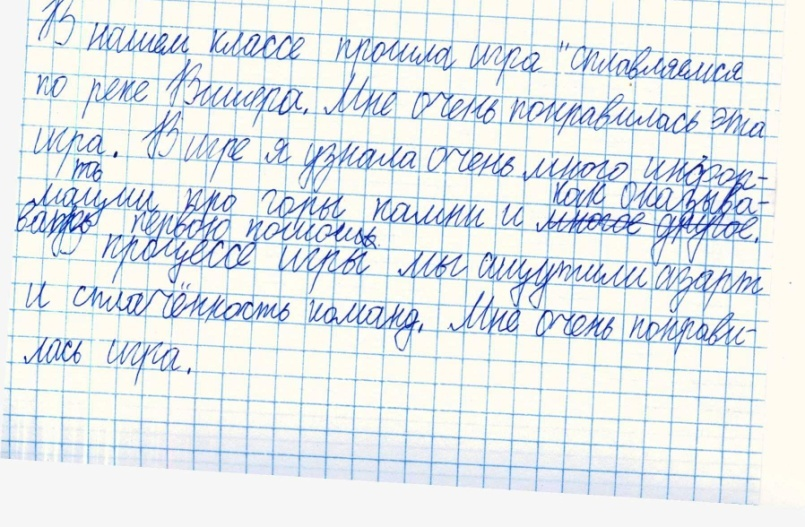 В нашем классе прошла игра "сплавляемся
по реке Вишера. Мне очень понравилась эта
игра. В игре я узнала очень много инфор-
ть как оказыва-
мации про горы камни и многое другое.
вать первою помощь
В процессе игры мы ащутили азарт
и сплачённость команд. Мне очень понрави-
лась игра.